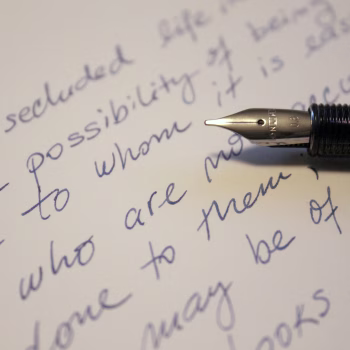 secluded life in
possibility of being
to whom it is eas
who are not
done to them;
may be of
ooks